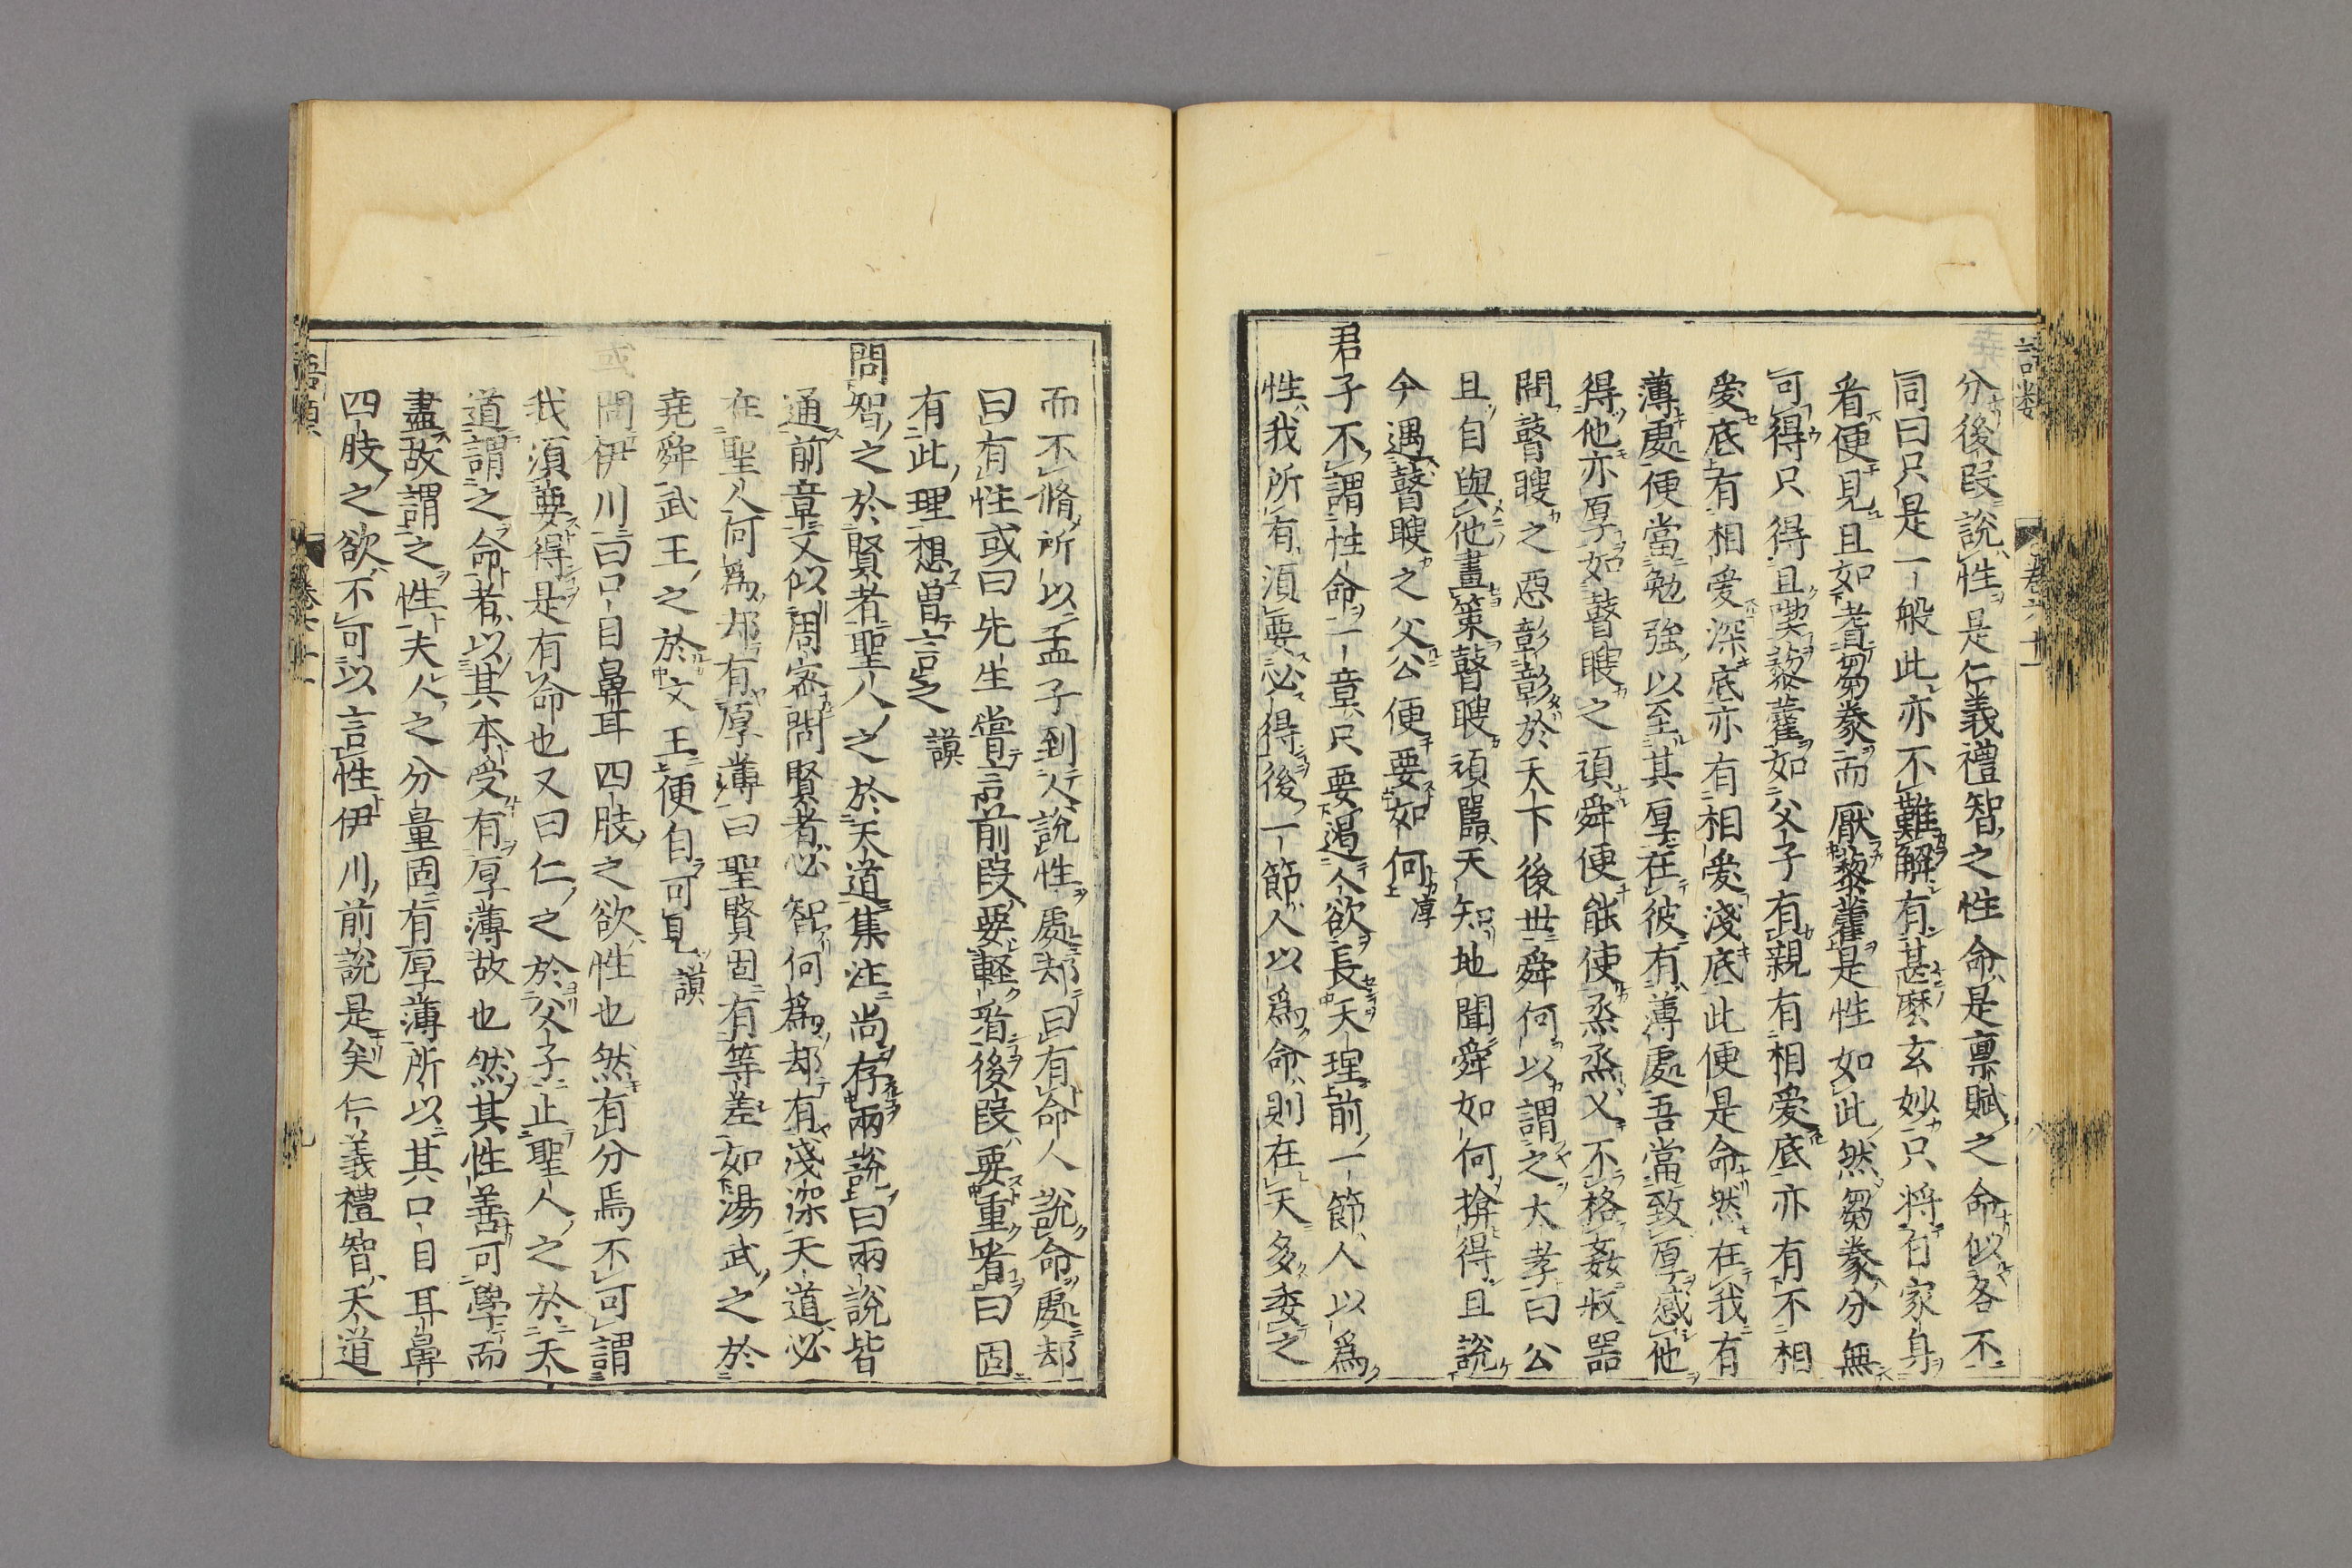 語類 卷六十一
分後段說性是仁義禮智之性命是稟賦之命似各不
同曰只是一般此亦不難解有甚麽玄妙只將自家身
看便見且如耆芻豢而厭藜藿是性如此然芻豢分無
可得只得且喫藜藿如父子有親有相愛底亦有不相
愛底有相愛深底亦有相愛淺底此便是命然在我有
薄處便當勉強以至其厚在彼有薄處吾當致厚感他
得他亦厚如瞽瞍之頑舜便能使烝烝乂不格姦叔器
問瞽瞍之惡彰彰於天下後世舜何以謂之大孝曰公
且自與他畫策瞽瞍頑嚚天知地聞舜如何揜得且說
今遇瞽瞍之父公便要如何 淳
君子不謂性命一章只要遏人欲長天理前一節人以爲
性我所有須要必得後一節人以爲命則在天多委之
而不脩所以孟子到人說性處却曰有命人說命處却
曰有性或曰先生嘗言前段要輕看後段要重看曰固
有此理想曾言之 謨
問智之於賢者聖人之於天道集注尚存兩說曰兩說皆
通前章又似周密問賢者必智何爲却有淺深天道必
在聖人何爲却有厚薄曰聖賢固有等差如湯武之於
堯舜武王之於文王便自可見 謨
問伊川曰口目鼻耳四肢之欲性也然有分焉不可謂
我須要得是有命也又曰仁之於父子止聖人之於天
道謂之命者以其本受有厚薄故也然其性善可學而
盡故謂之性夫人之分量固有厚薄所以其口目耳鼻
四肢之欲不可以言性伊川前說是矣仁義禮智天道
語類 卷六十一 九